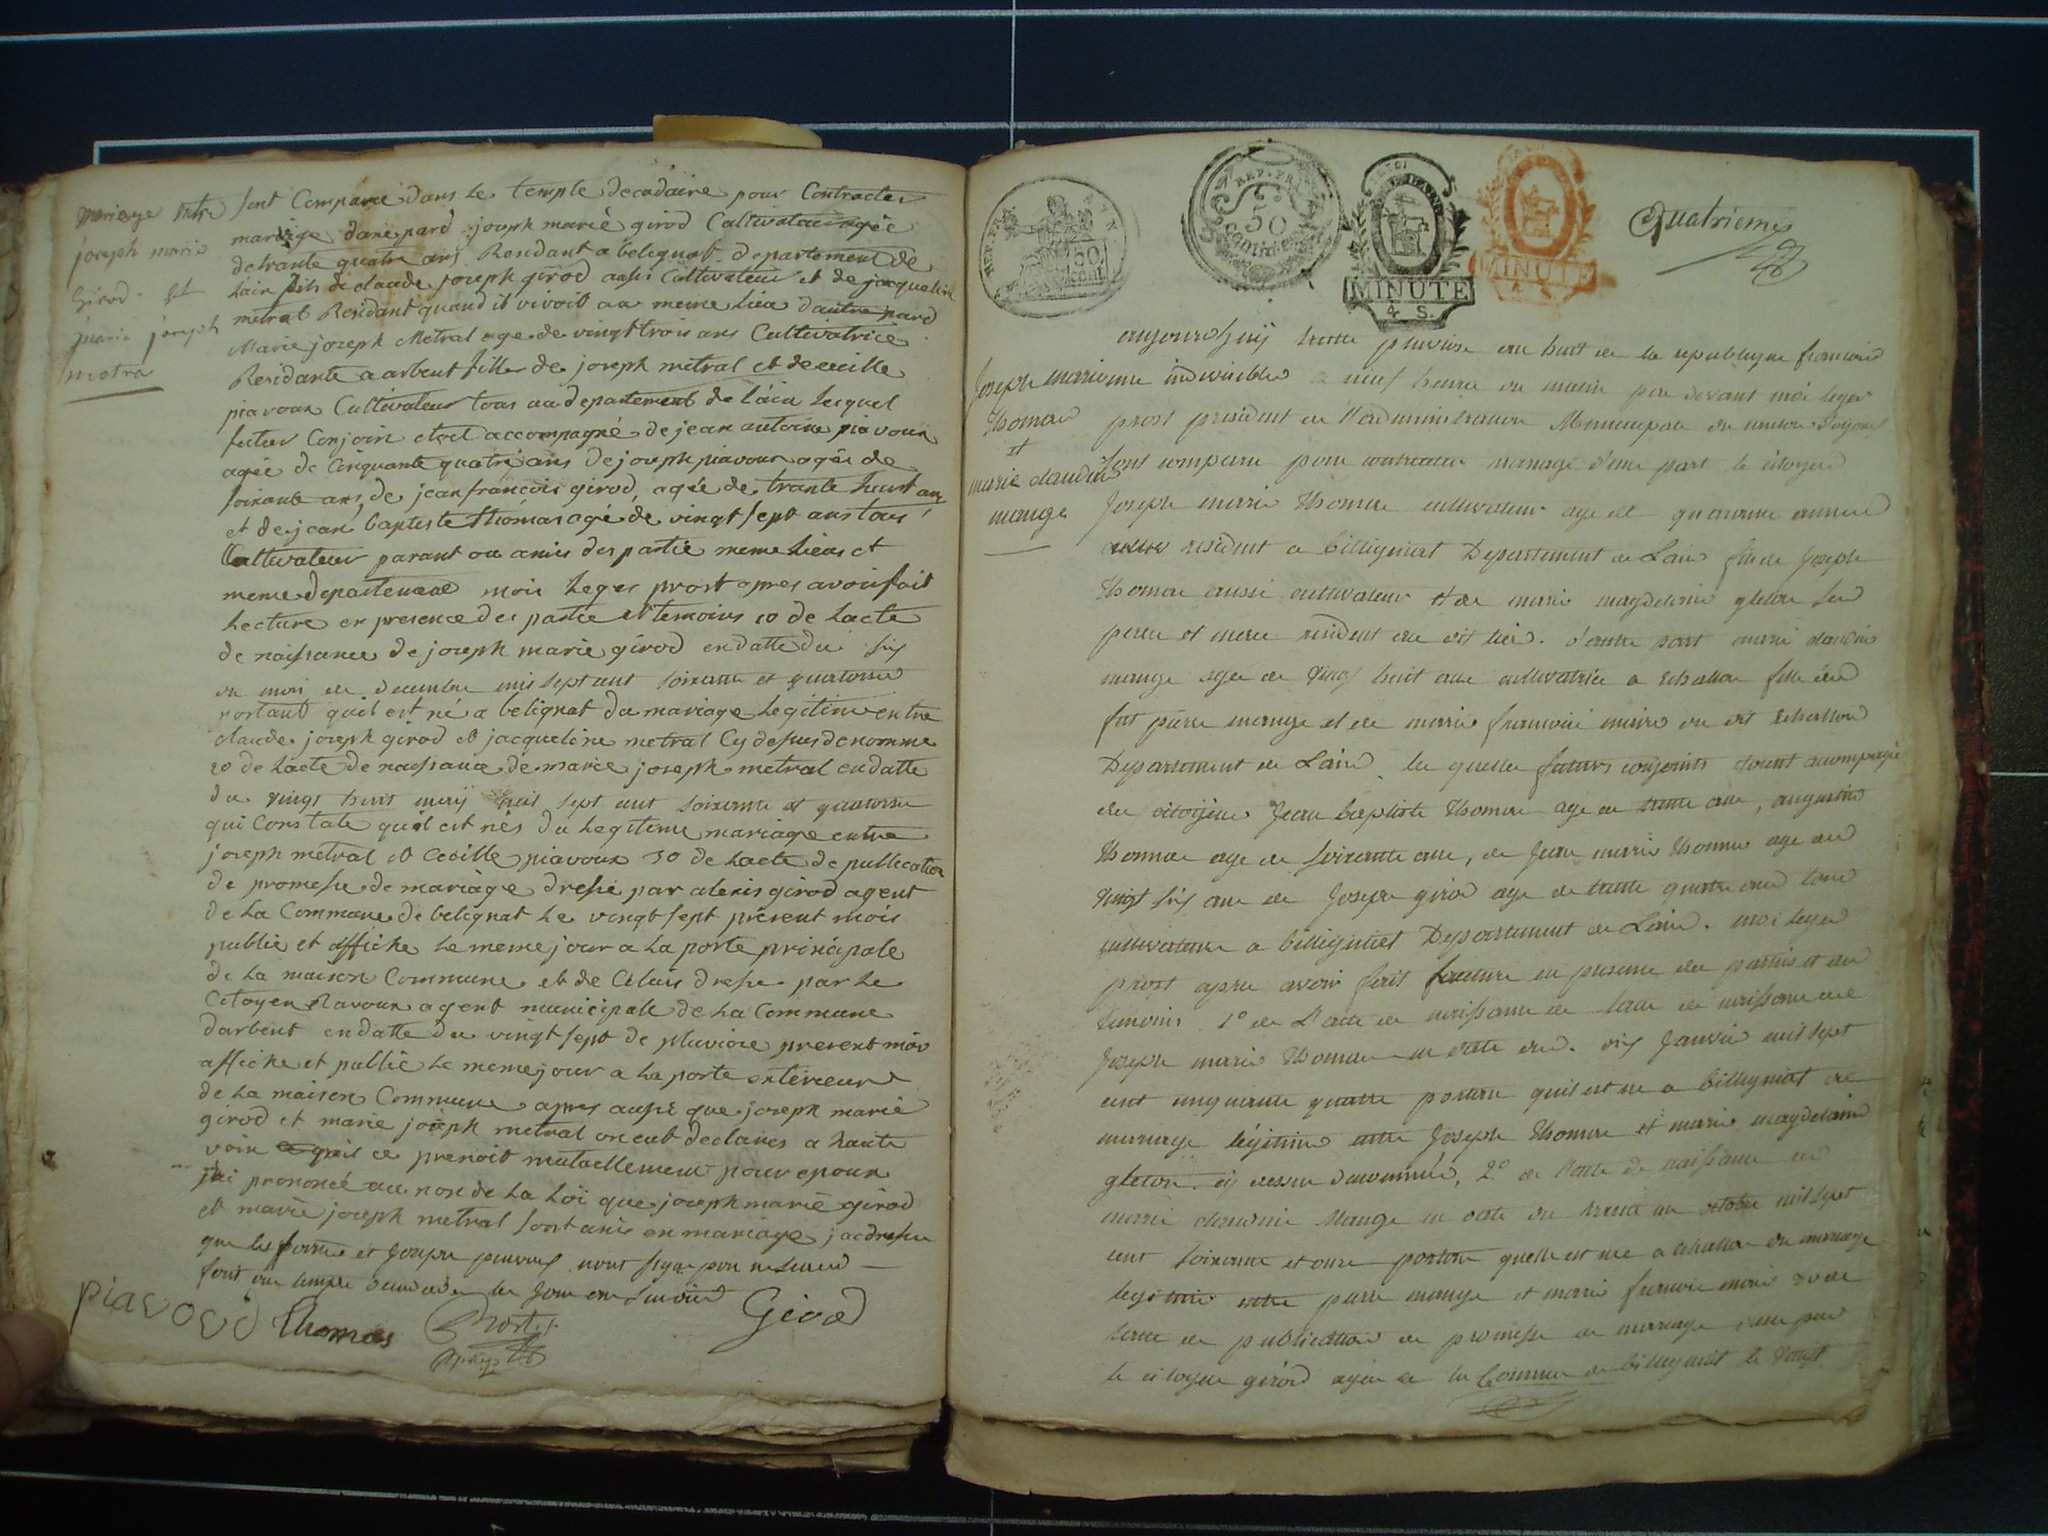 mariage entre
joseph marie
Girod et
marie joseph
metra
sont Comparu dans le temple decadaire pour Contracter
mariage dune pard joseph marie girod Cultivateur agée
de trante quatre ans Residant a belegnat departement de
lain fils de claude joseph girod aussi Cultivateur et de jacqueline
metral Residant quand il vivoit au meme lieu dautre pard
Marie joseph Metral age de vingt trois ans Cultivatrice
Residante a arbent fille de joseph metral et de cecille
piavoux Cultivateur tous au departement de l'ain lesquel
futur Conjoin etoit accompagné de jean antoine piavoux
agée de Cinquante quatre ans de joseph piavoux agée de
soixante ans, de jean françois girod, agée de trante huit ans
et de jean baptiste thomas agé de vingt sept ans tous
Cultivateur parant ou amis des partie meme lieux et
meme departement moi leger prost apres avoir fait
lecture en presence des partie et temoins 10 de lacte
de naissance de joseph marie girod en datte du six
du moi de decembre mil sept cent soixante et quatorze
portant quil est né a belignat du mariage legitime entre
claude joseph girod et jacqueline metral Cy desus denommé
20 de lacte de naissance de marie joseph metral en datte
du vingt huit may mil sept cent soixante et quatorze
qui Constate quil est nés du legitime mariage entre
joseph metral et Cecille piavoux 30 de lacte de publication
de promesse de mariage dresse par alexis girod agent
de la Commune de belignat le vingt sept present mois
publie et affiche le meme jour a la porte principale
de la maison Commune et de Celuis dresse par le
Citoyen Ravoux agent municipale de la Commune
darbent en datte du vingt sept de pluviose present mois
affiche et publié le meme jour a la porte exterieur
de la maison Commune apres aussi que joseph marie
girod et marie joseph metral on eub declares a haute
voix quil ce prenoit mutuellement pour epoux
jai prononcé au non de la Loi que joseph marie girod
et marie joseph metral sont unis en mariage jai dresse
que les et joseph piavoux nont signe pour
fait au temple decadaire les jour an
piavoux Thomas Prost Girod
Quatrieme
REP. FRA.
50
cent.
REP. FRA.
50
centimes
MINUTE
4 S.
MINUTE
4 S.
Joseph marie
thomas
et
marie claudine
mange
aujourdhuy trante pluviose an huit de la republique francaise
une indivisible a neuf heure du matin par devant moi leger
prost president de l'administration Municipale du canton Doyonax
sont comparu pour contracter mariage d'une part le citoyen
Joseph marie thomas cultivateur age de quarante
resident a billigniat Departement de Lain fils de Joseph
thomas aussi cultivateur et de marie magdelaine gleton ses
pere et mere resident au dit lieu. d'autre part marie claudine
mange agée de vingt huit ans cultivatrice a echallon fille de
fut pierre mange et de marie francoise maire du dit echallon
Departement de Lain les quelles futurs conjoints etoient acompagné
des citoyens Jean baptiste thomas age de trante ans, augustin
thomas age de soixante ans, de Jean marie thomas age de
vingt six ans de Joseph girod age de trante quatre ans tous
cultivateurs a billigniat Departement de Lain. moi leger
prost apres avoir fait lecture en presence des parties et des
temoins 1º de L'acte de naissance de
Joseph marie thomas en date du dix Janvier mil sept
cent cinquante quatre portant quil est né a billigniat de
mariage légitime entre Joseph thomas et marie magdelaine
gleton cy dessus denommée, 2º de l'acte de naissance de
marie claudine Mange en date du trente un octobre mil sept
cent soixante et onze portant quelle est née a echallon du mariage
legitime entre pierre mange et marie francoise maire 3º de
lacte de publication de promesse de mariage par
le citoyen girod agent de la Commune de billigniat le vingt